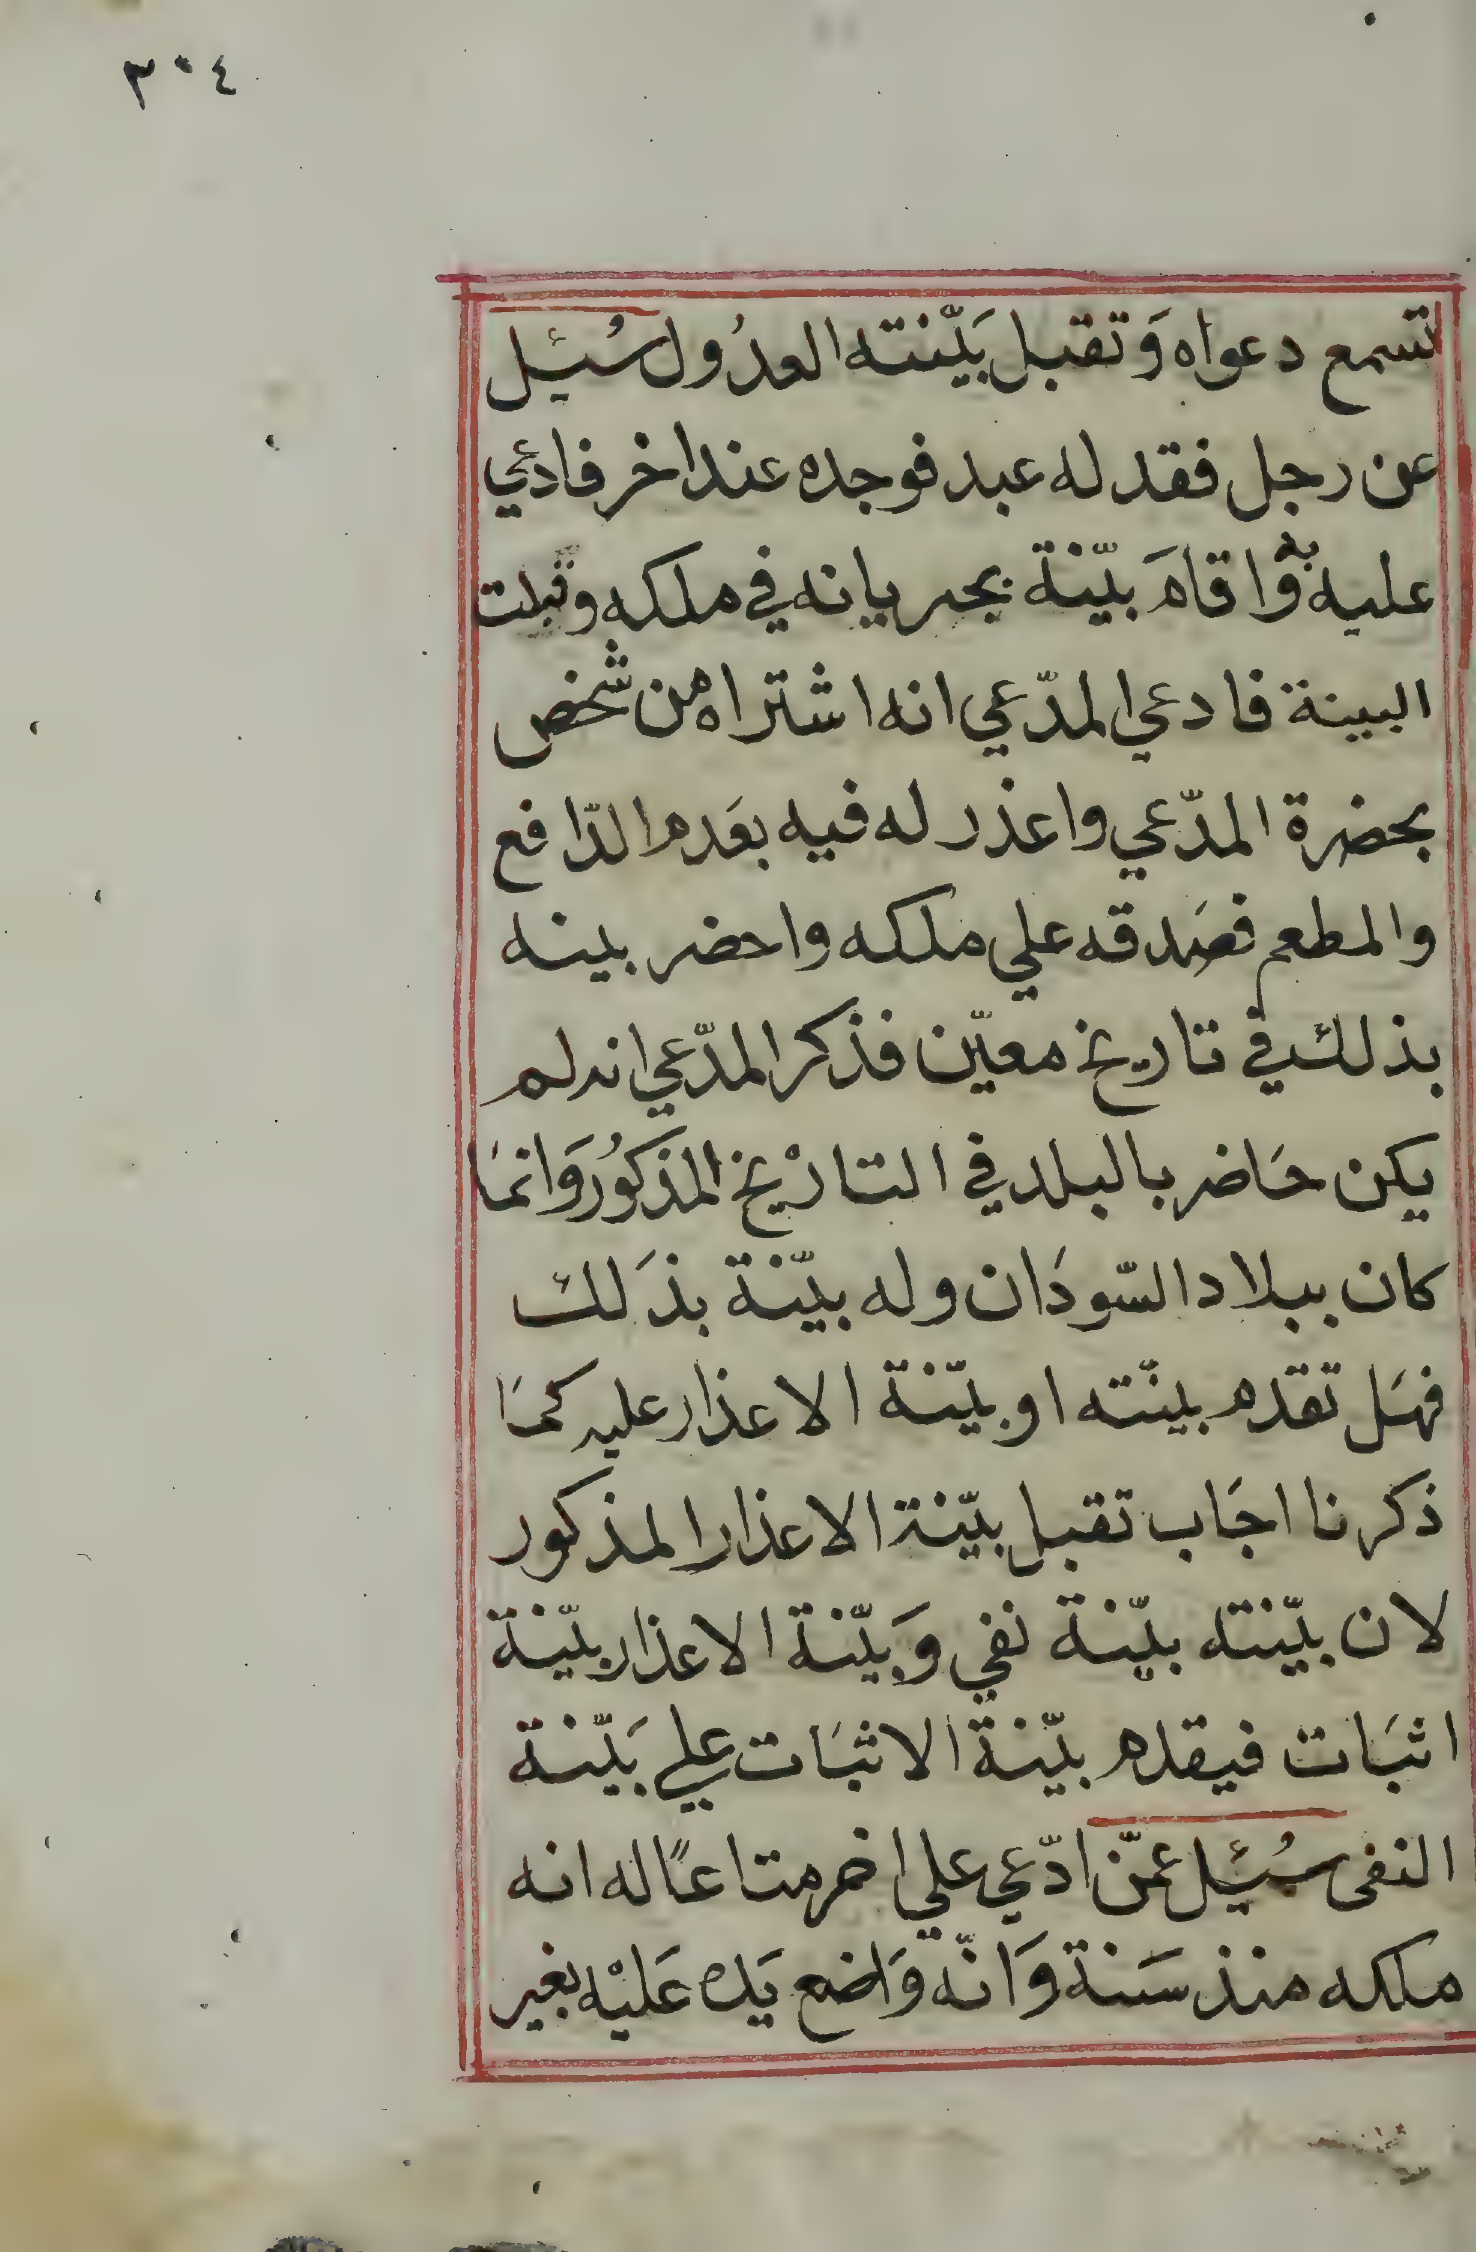 ٣٠٤
تسمع دعواه وَتقبل بَيّنته العدُول سُئِل
عن رجل فقد له عبد فوجده عند اخر فادعي
عليه به وَاقامَ بيّنة بجريانه في ملكه وقبلت
البينة فادعي المدّعي انه اشتراه من شخص
بحضرة المدّعي واعذر له فيه بعَدم الدّافع
والمطعم فصَدقه علي ملكه واحضر بينه
بذلك في تاريخ معيّن فذكر المدّعي انه لم
يكن حَاضر بالبلد في التارْيخ المذكوُر وَانمَا
كان ببلاد السّودَان وله بيّنة بذَلك
فهَل تقدم بينّته او بيّنة الاعذار عليه كمَا
ذكرنا اجَاب تقبل بيّنة الاعذار المذكور
لان بيّنته بيّنة نفي وَبيّنة الاعذار بيّنة
اثبَات فيقدم بيّنة الاثبَات علي بَيّنة
النفى سُئِل عمّن ادّعي علي اخر متاعًا له انه
ملكه منذ سَنة وَانّه وَاضع يَده عَليْه بغير